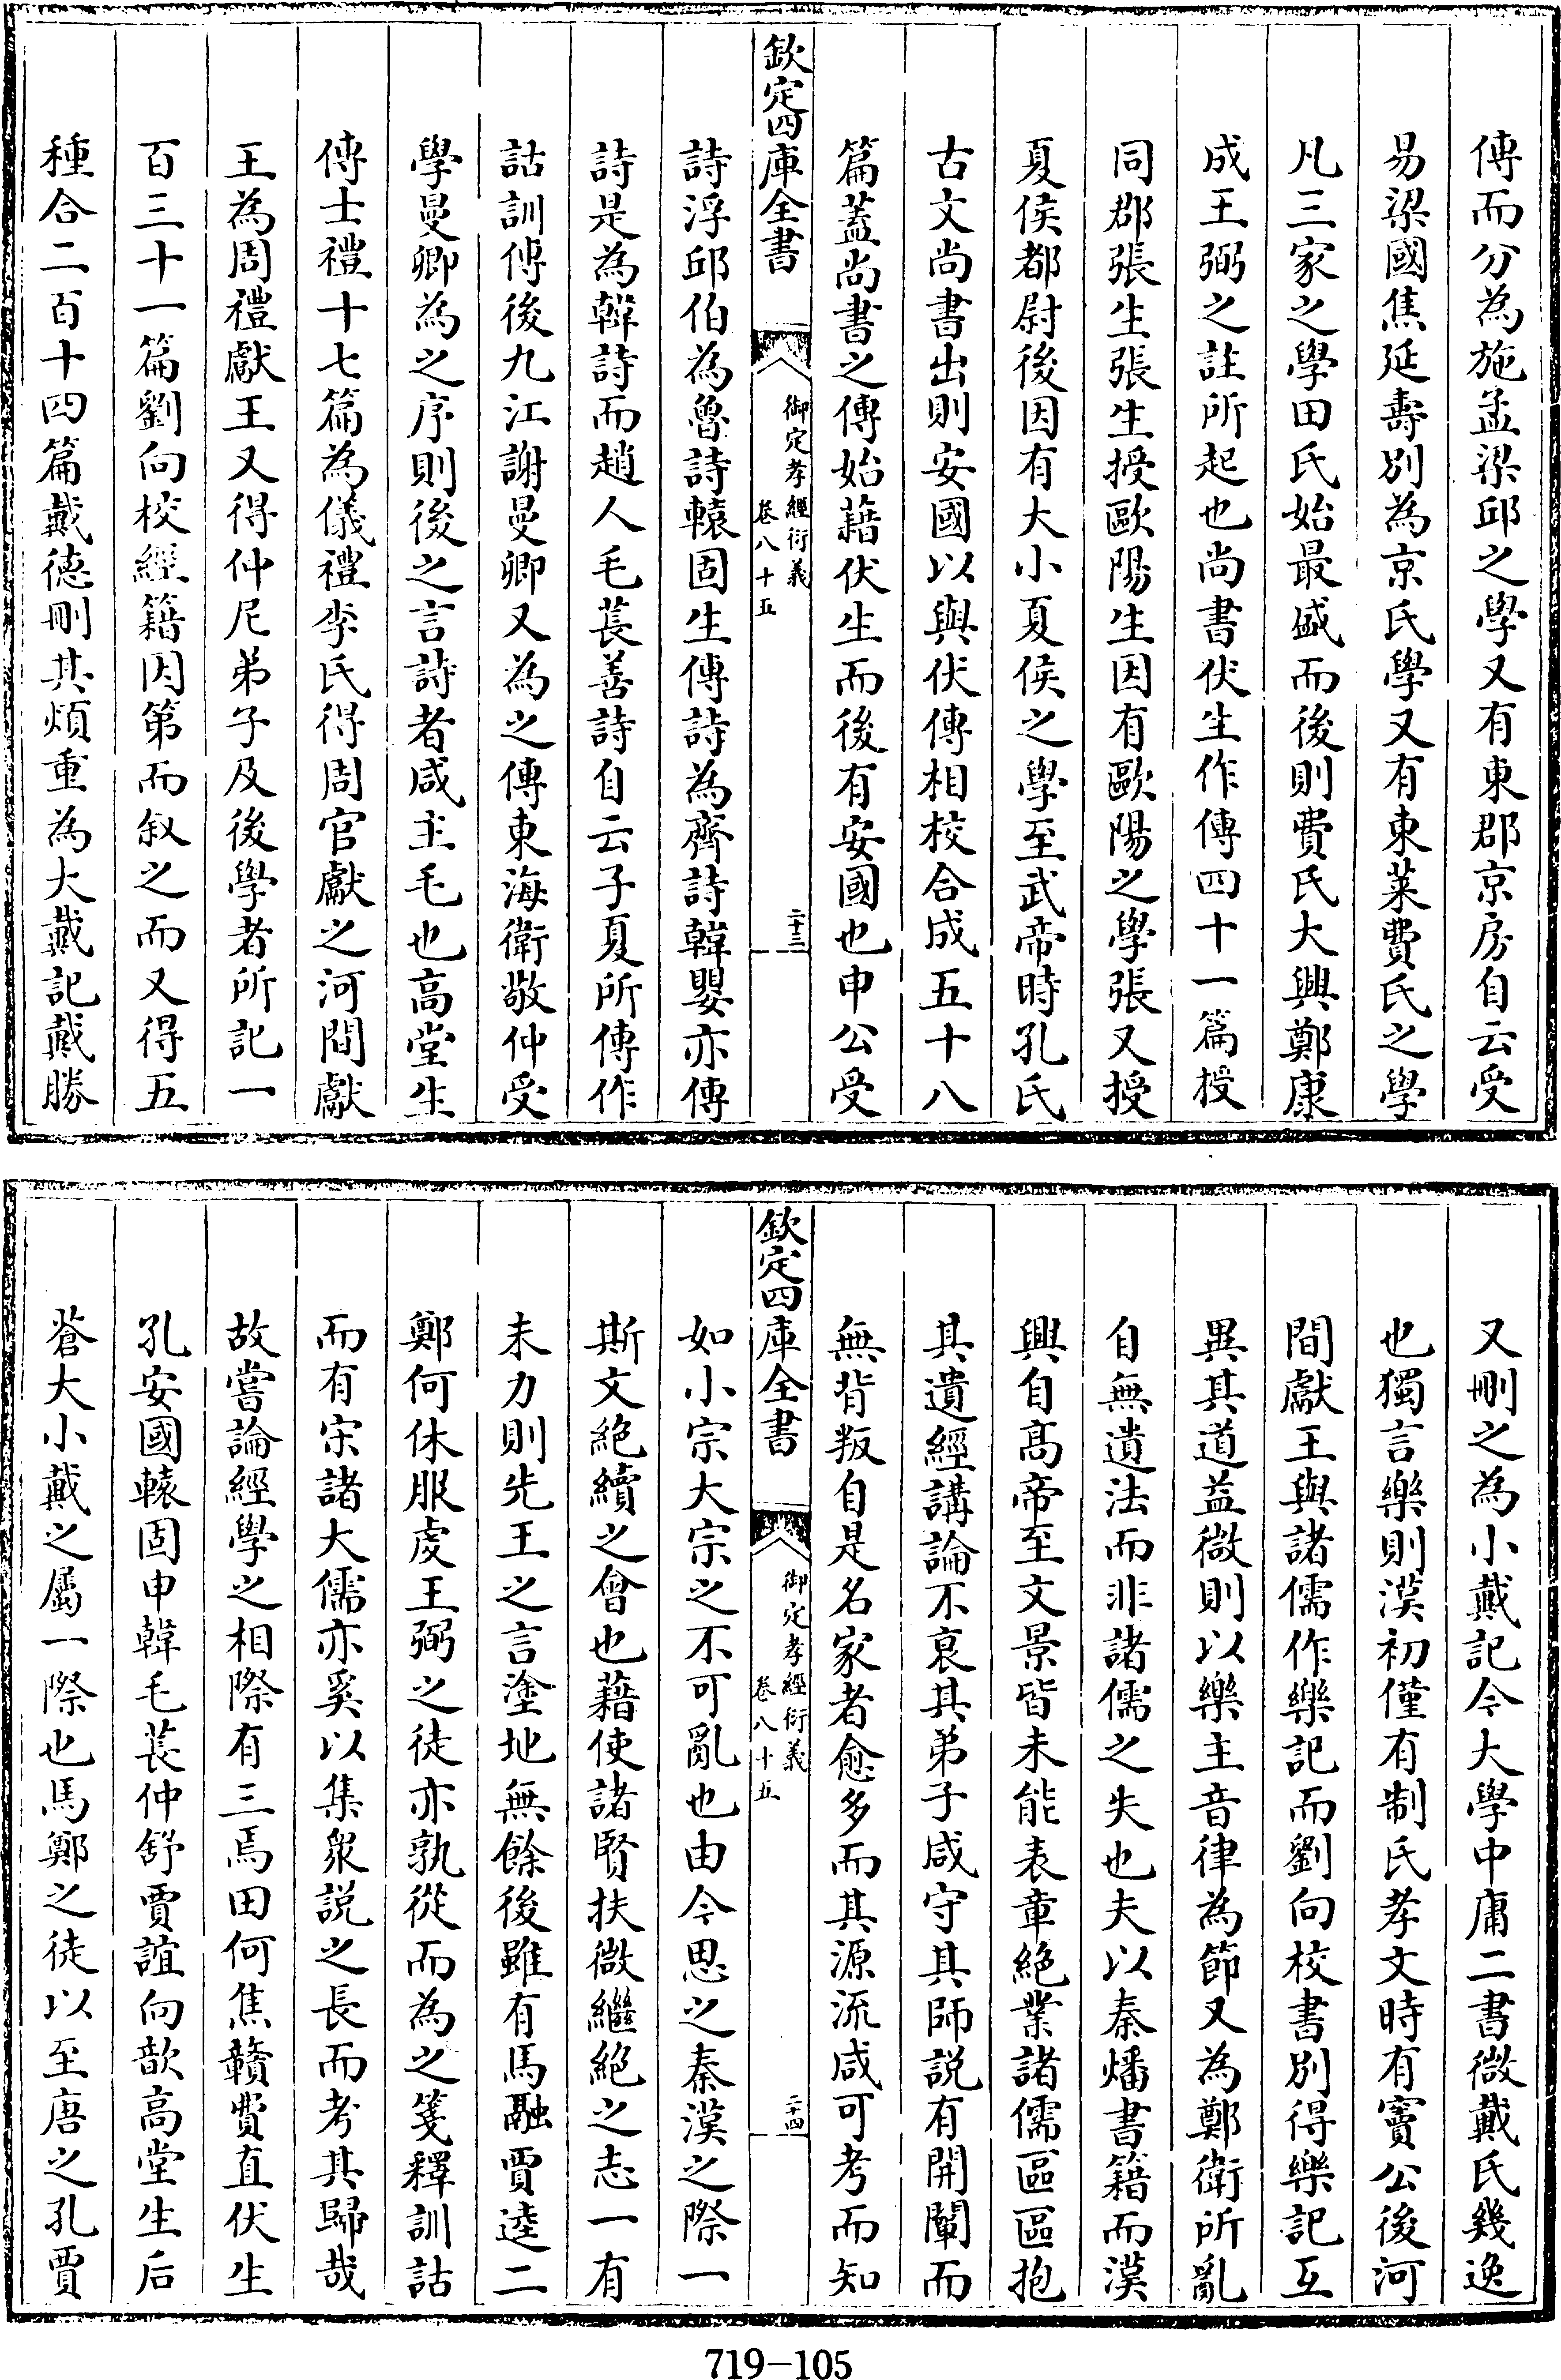 傳而分為施孟梁邱之學又有東郡京房自云受
易梁國焦延壽別為京氏學又有東萊費氏之學
凡三家之學田氏始最盛而後則費氏大興鄭康
成王弼之註所起也尚書伏生作傳四十一篇授
同郡張生張生授歐陽生因有歐陽之學張又授
夏侯都尉後因有大小夏侯之學至武帝時孔氏
古文尚書出則安國以與伏傳相校合成五十八
篇蓋尚書之傳始藉伏生而後有安國也申公受
欽定四庫全書
御定孝經衍義
卷八十五
二十三
詩浮邱伯為魯詩轅固生傳詩為齊詩韓嬰亦傳
詩是為韓詩而趙人毛萇善詩自云子夏所傳作
詁訓傅後九江謝曼卿又為之傳東海衛敬仲受
學曼卿為之序則後之言詩者咸主毛也高堂生
傳士禮十七篇為儀禮李氏得周官獻之河間獻
王為周禮獻王又得仲尼弟子及後學者所記一
百三十一篇劉向校經籍因第而叙之而又得五
種合二百十四篇戴德刪其煩重為大戴記戴勝
又刪之為小戴記今大學中庸二書微戴氏幾逸
也獨言樂則漢初僅有制氏孝文時有竇公後河
間獻王與諸儒作樂記而劉向校書別得樂記互
異其道益微則以樂主音律為節又為鄭衛所亂
自無遺法而非諸儒之失也夫以秦燔書籍而漢
興自髙帝至文景皆未能表章絕業諸儒區區抱
其遺經講論不哀其弟子咸守其師說有開闡而
無背叛自是名家者愈多而其源流咸可考而知
欽定四庫全書
御定孝經衍義
卷八十五
二十四
如小宗大宗之不可亂也由今思之秦漢之際一
斯文絕續之會也藉使諸賢扶微繼絕之志一有
未力則先王之言塗地無餘後雖有馬融賈逵二
鄭何休服虔王弼之徒亦孰從而為之箋釋訓詁
而有宋諸大儒亦奚以集衆説之長而考其歸哉
故嘗論經學之相際有三焉田何焦贛費直伏生
孔安國轅固申韓毛萇仲舒賈誼向歆高堂生后
蒼大小戴之屬一際也馬鄭之徒以至唐之孔賈
719-105